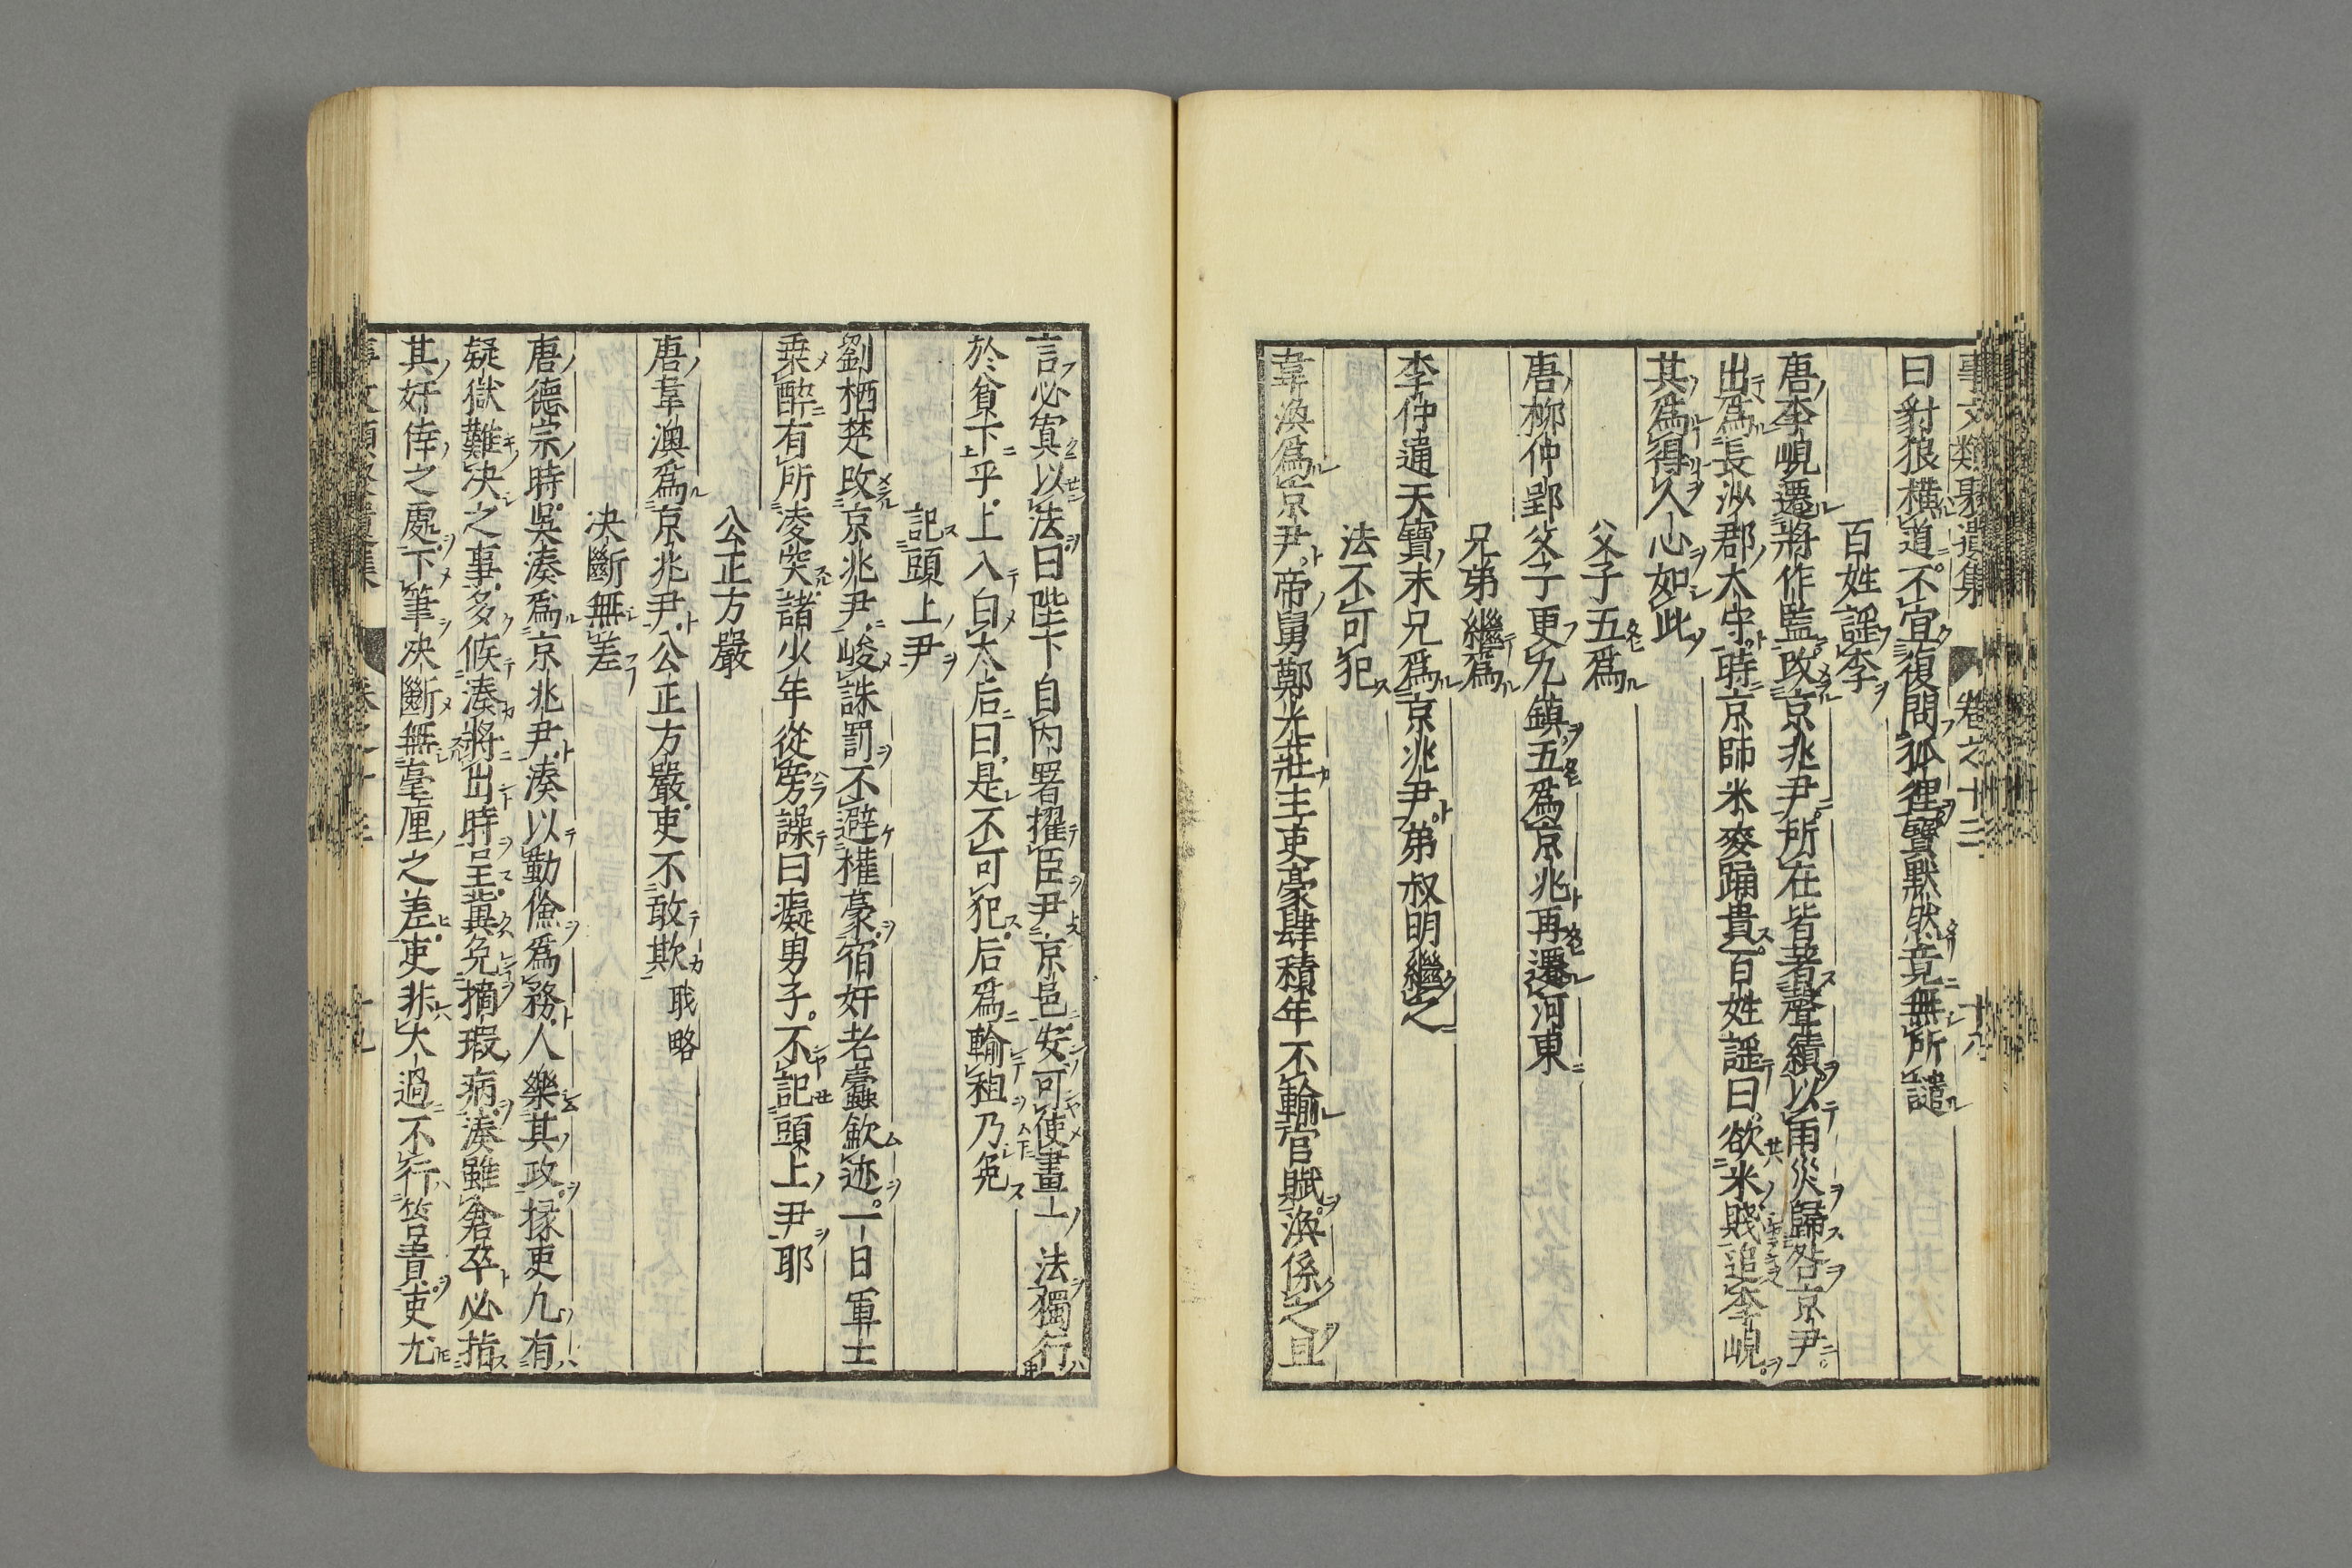 事文類聚遺集 卷之十三 十八
曰豺狼橫道不宜復問狐狸寶默然竟無所譴
百姓謡李
唐李峴遷將作監改京兆尹所在皆著聲績以雨災歸咎京尹
出爲長沙郡太守時京師米麥踊貴百姓謡曰欲米賤追李峴
其爲得人心如此
父子五爲
唐柳仲郢父子更九鎮五爲京兆再遷河東
兄弟繼爲
李仲通天寶末兄爲京兆尹弟叔明繼之
法不可犯
韋渙爲京尹帝舅鄭光莊主吏豪肆積年不輸官賦渙係之且
言必寘以法曰陛下自内署擢臣尹京邑安可使畫一法獨行
於貧下乎上入白太后曰是不可犯后爲輸租乃免
記頭上尹
劉栖楚改京兆尹峻誅罰不避權豪宿奸老蠹斂迹一日軍士
乗醉有所凌突諸少年從旁譟曰癡男子不記頭上尹耶
公正方嚴
唐韋澳爲京兆尹公正方嚴吏不敢欺 戢略
决斷無差
唐德宗時吳湊爲京兆尹湊以勤儉爲務人樂其政掾吏凡有
疑獄難决之事多候湊將出時呈冀免摘瑕病湊雖倉卒必指
其奸倖之處下筆决斷無毫厘之差吏非大過不行笞責吏尤